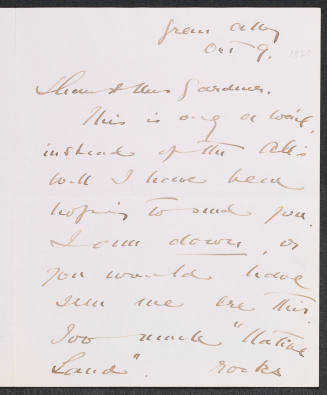 Green alley
Oct 9. 1920
Dear Mrs Gardner.
This is only a word,
instead of the
I have been
hoping to send you.
I am down, or
you would have
seen me ere this.
Too much "Native
Land". rocks